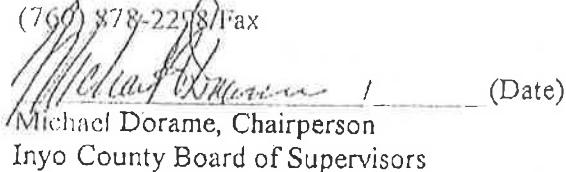 (760) 878-2298/Fax
/ (Date)
Michael Dorame, Chairperson
Inyo County Board of Supervisors